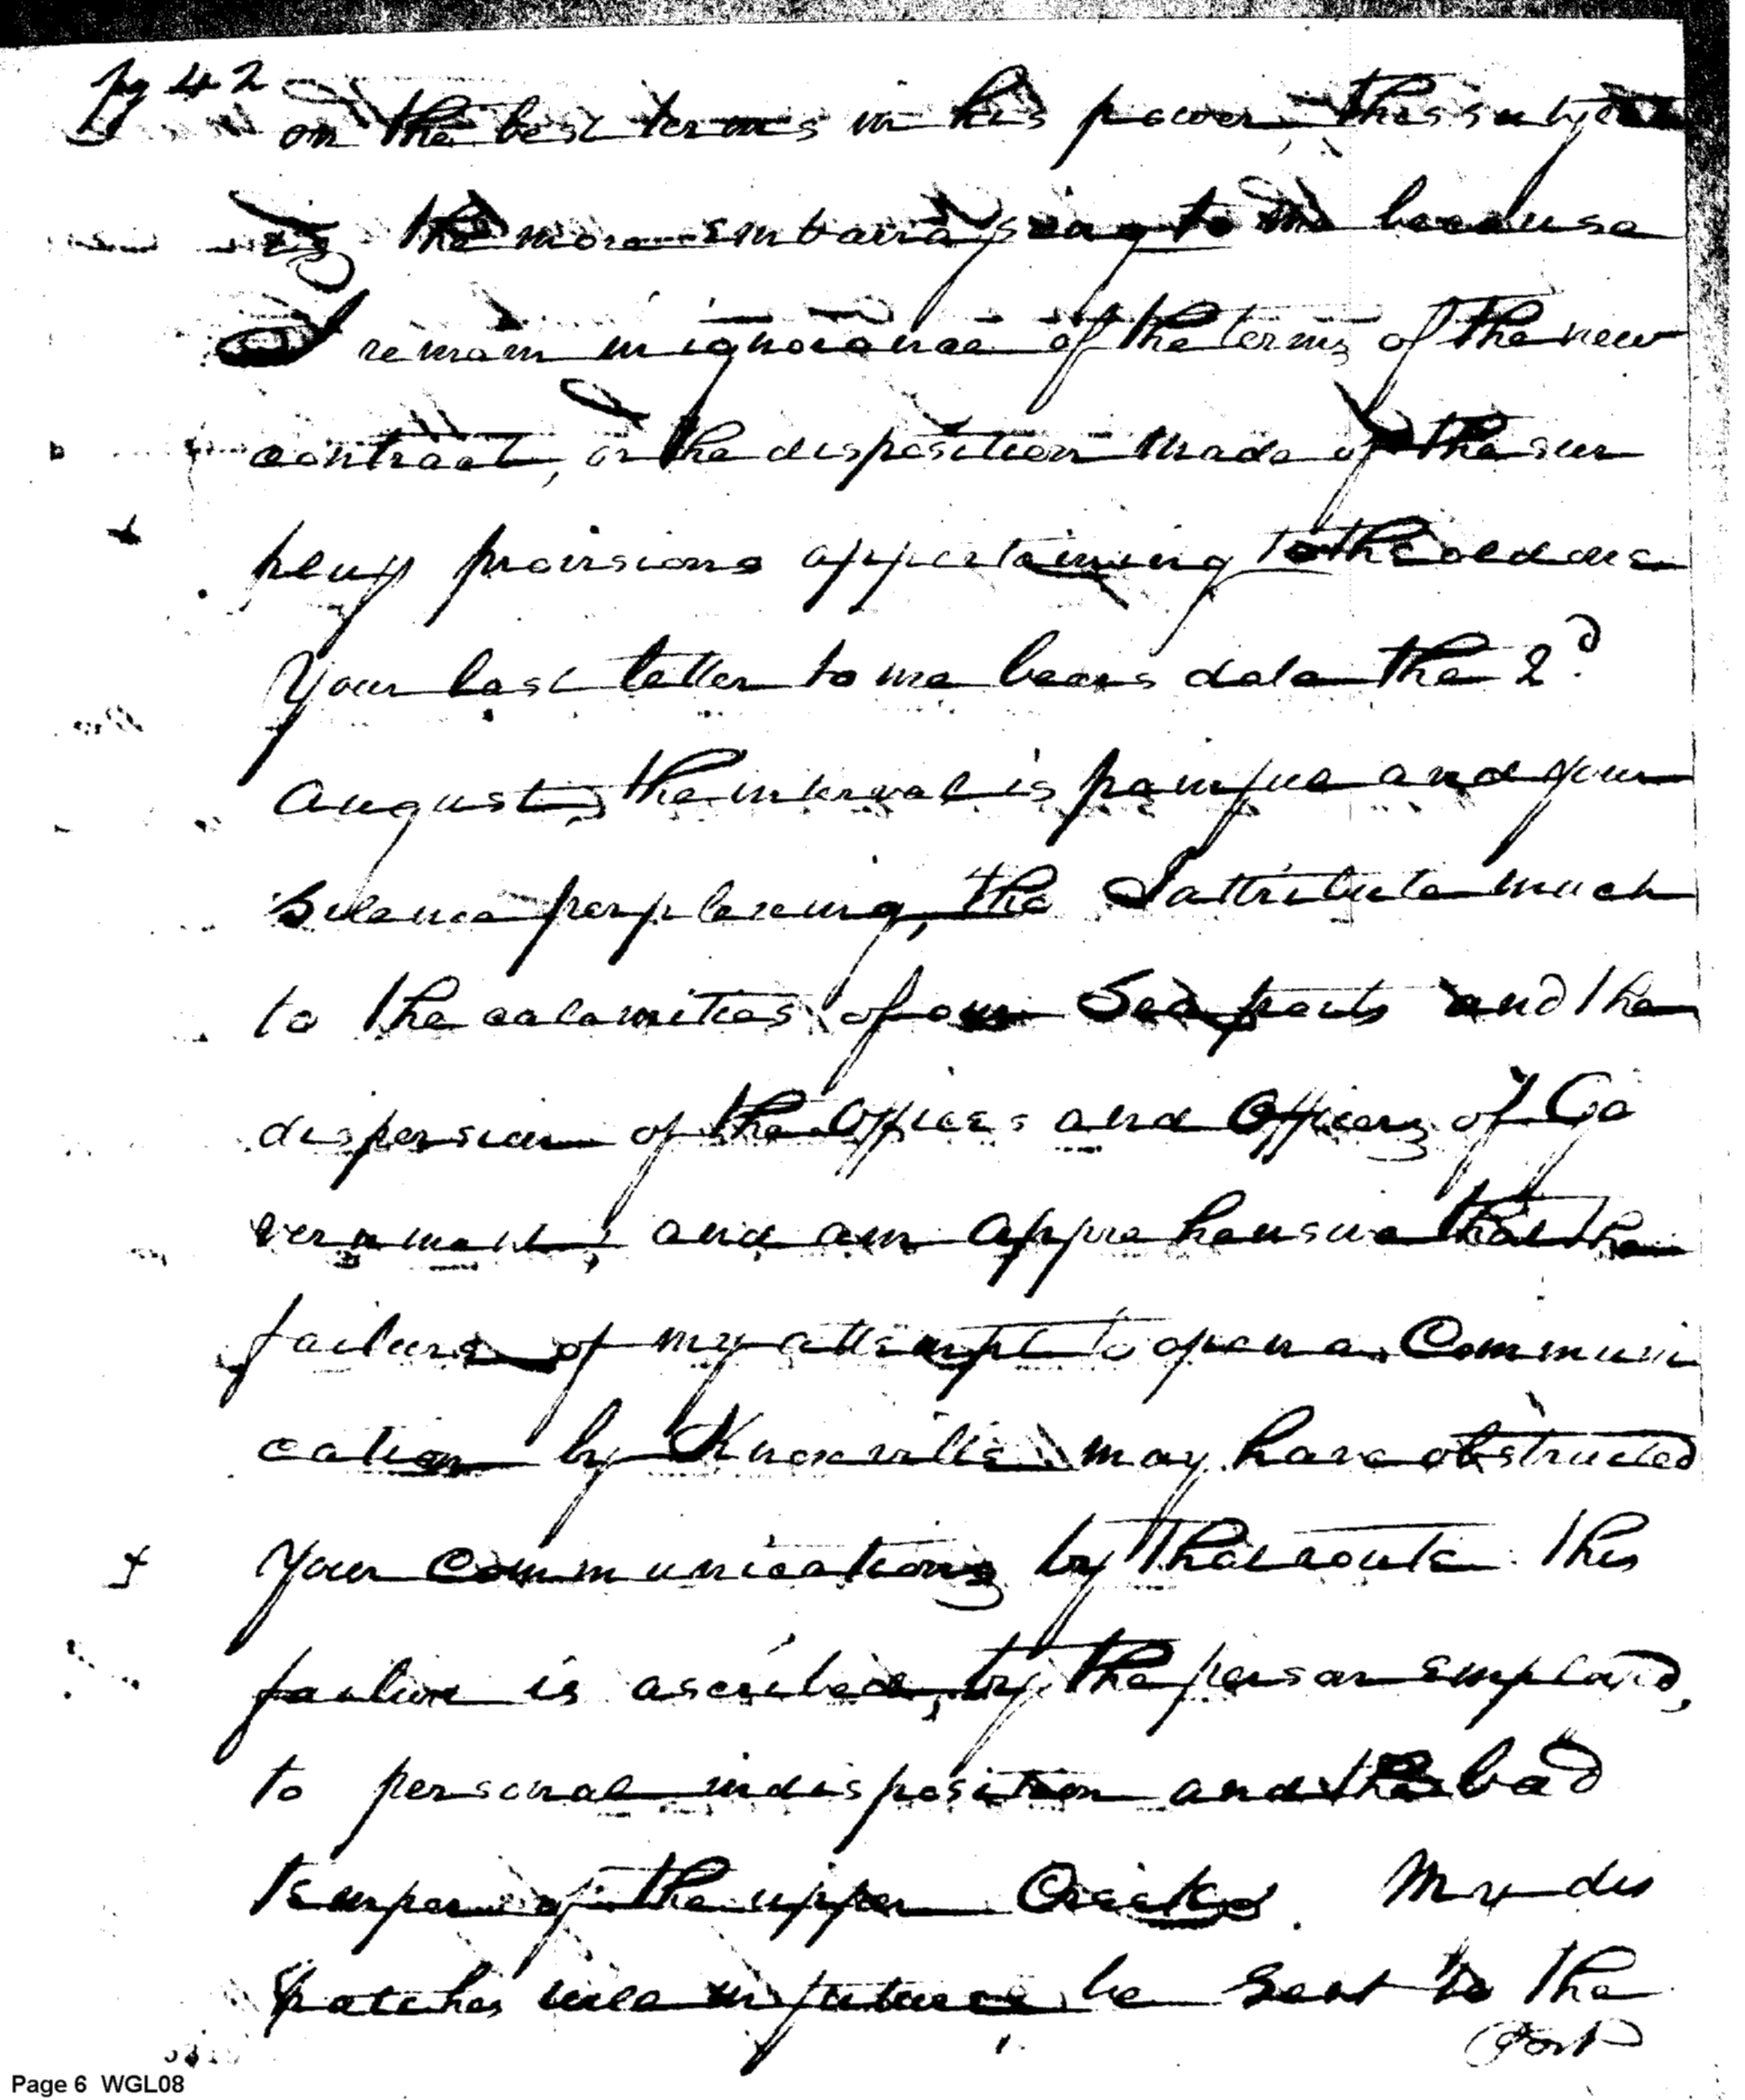 pg 42
on the best terms in his power, this subject
is the more embarrassing to me because
I remain in ignorance of the terms of the new
contract, or the disposition made of the sur
pluss provisions appertaining to the old one
Your last letter to me bears date the 2d.
August, the interval is painful and your
Silence perplexing, tho I attribute much
to the calamities of our Sea ports and the
dispersion of the Offices and Officers of Go
vernment; and am apprehensive that the
failure of my attempt to open a Communi
cation by Knoxville may have obstructed
Your Communications by that route. this
failure is ascribed, by the person employd,
to personal indisposition and the bad
temper of the upper Creeks. My dis
patches will in future be sent to the
Post
Page 6 WGL08